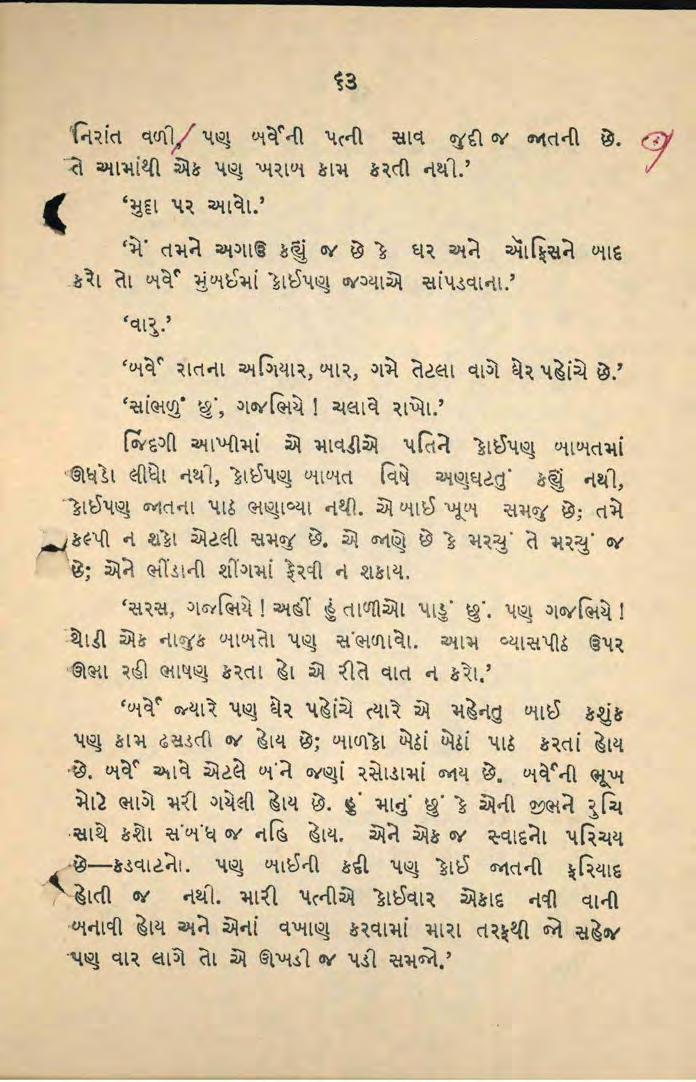 ૬૩
નિરાંત વળી, પણ બર્વેની પત્ની સાવ જુદી જ જાતની છે.
તે આમાંથી એક પણ ખરાબ કામ કરતી નથી.’
‘મુદ્દા પર આવો.’
‘મેં તમને અગાઉ કહ્યું જ છે કે ઘર અને ઑફિસને બાદ
કરો તો બર્વે મુંબઈમાં કોઈપણ જગ્યાએ સાંપડવાના.’
‘વારુ.’
‘બર્વે રાતના અગિયાર, બાર, ગમે તેટલા વાગે ઘેર પહોંચે છે.’
‘સાંભળું છું, ગજભિયે ! ચલાવે રાખો.’
જિંદગી આખીમાં એ માવડીએ પતિને કોઈપણ બાબતમાં
ઊધડો લીધો નથી, કોઈપણ બાબત વિષે અણઘટતું કહ્યું નથી,
કોઈપણ જાતના પાઠ ભણાવ્યા નથી. એ બાઈ ખૂબ સમજુ છે; તમે
કલ્પી ન શકો એટલી સમજુ છે. એ જાણે છે કે મરચું તે મરચું જ
છે; એને ભીંડાની શીંગમાં ફેરવી ન શકાય.
‘સરસ, ગજભિયે ! અહીં હું તાળીઓ પાડું છું. પણ ગજભિયે !
થોડી એક નાજુક બાબતો પણ સંભળાવો. આમ વ્યાસપીઠ ઉપર
ઊભા રહી ભાષણ કરતા હો એ રીતે વાત ન કરો.’
‘બર્વે જ્યારે પણ ઘેર પહોંચે ત્યારે એ મહેનતુ બાઈ કશુંક
પણ કામ ઢસડતી જ હોય છે; બાળકો બેઠાં બેઠાં પાઠ કરતાં હોય
છે. બર્વે આવે એટલે બંને જણાં રસોડામાં જાય છે. બર્વેની ભૂખ
મોટે ભાગે મરી ગયેલી હોય છે. હું માનું છું કે એની જીભને રુચિ
સાથે કશો સંબંધ જ નહિ હોય. એને એક જ સ્વાદનો પરિચય
છે—કડવાટનો. પણ બાઈની કદી પણ કોઈ જાતની ફરિયાદ
હોતી જ નથી. મારી પત્નીએ કોઈવાર એકાદ નવી વાની
બનાવી હોય અને એનાં વખાણ કરવામાં મારા તરફથી જો સહેજ
પણ વાર લાગે તો એ ઊખડી જ પડી સમજો.’